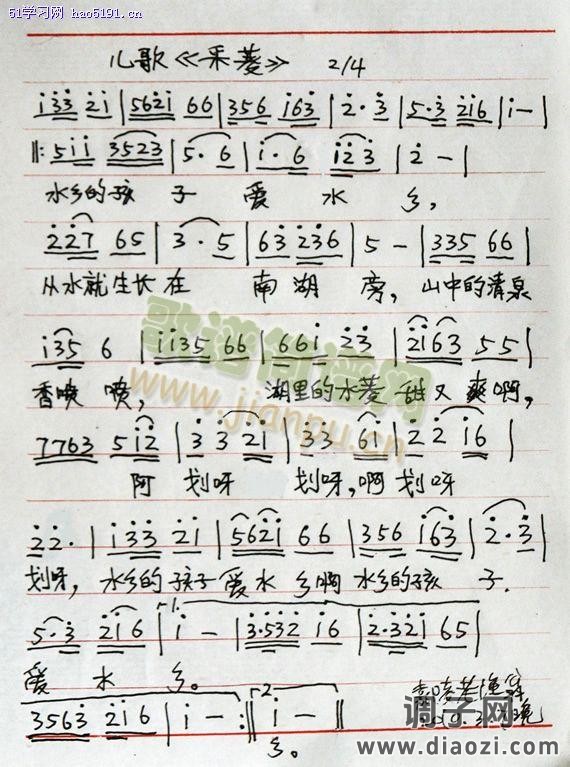 51学习网 hao5191.cn
儿歌《采菱》 2/4
i33 21 | 5621 66 | 356 163 | 2·3 | 5·3 216 | i - |
‖: 5ii 3523 | 5·6 | i·6 i23 | 2 - |
水乡的孩子 爱水乡,
227 65 | 3·5 | 63 236 | 5 - | 335 66 |
从水就生长在 南湖旁, 山中的清泉
i35 6 | ii35 66 | 66i 23 | 2i63 55 |
香喷喷, 湖里的水菱甜又爽啊,
7763 5i2 | 33 2i | 33 6i | 22 i6 |
阿划呀 划呀,啊划呀
22· | i33 2i | 562i 66 | 356 i63 | 2·3 |
划呀, 水乡的孩子爱水乡啊 水乡的孩子.
5·3 2i6 | i - | 3·532 i6 | 2·32i 65 |
爱水乡。
3563 2i6 | i - :‖ i - ‖
乡。
歌谱简谱网
www.jianpu.cn
调子网
www.diaozi.com